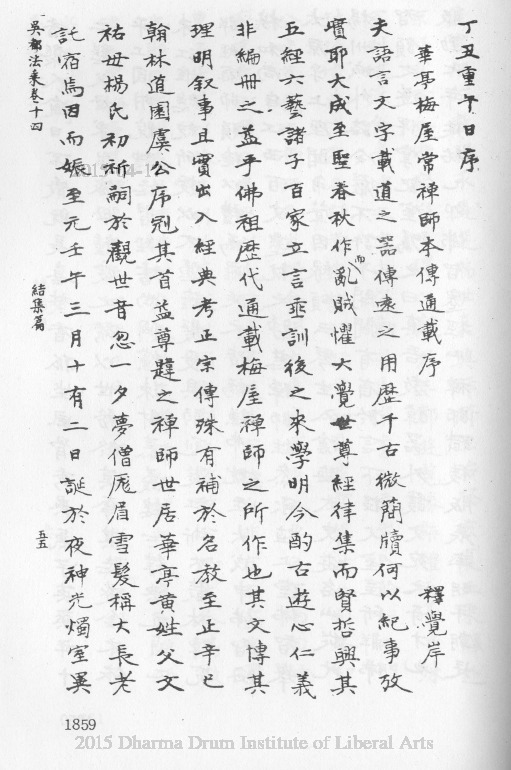 丁丑重午日序
華亭梅屋常禪師本傳通載序
釋覺岸
夫語言文字載道之器傳遠之用歷千古微簡牘何以紀事攷
實耶大成至聖春秋作而亂賊懼大覺世尊經律集而賢哲興其
五經六藝諸子百家立言垂訓後之來學明今酌古遊心仁義
非編冊之益乎佛祖歷代通載梅屋禪師之所作也其文博其
理明叙事且實出入經典考正宗傳殊有補於名教至正辛巳
翰林道園虞公序冠其首益尊韙之禪師世居華亭黃姓父文
祐母楊氏初祈嗣於觀世音忽一夕夢僧厖眉雪髮稱大長老
託宿焉因而娠至元壬午三月十有二日誕於夜神光燭室異
吳都法乘卷十四
結集篇
五五
1859
2015 Dharma Drum Institute of Liberal Arts